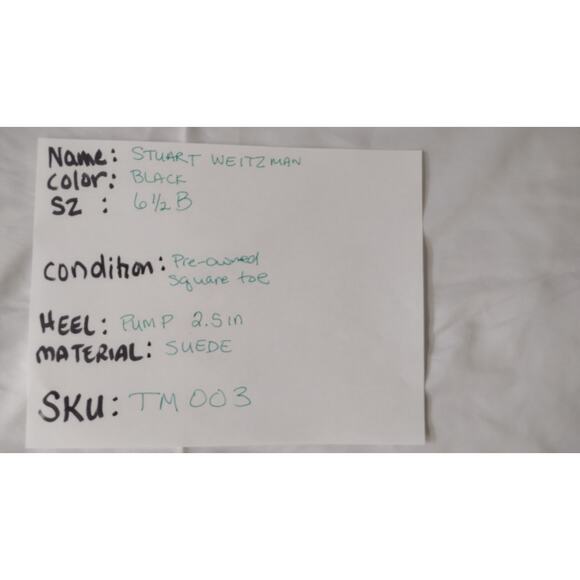 Name: STUART WEITZMAN
Color: BLACK
SZ : 6 1/2 B
Condition: Pre-owned
square toe
HEEL: PUMP 2.5 in
MATERIAL: SUEDE
SKU: TM 003